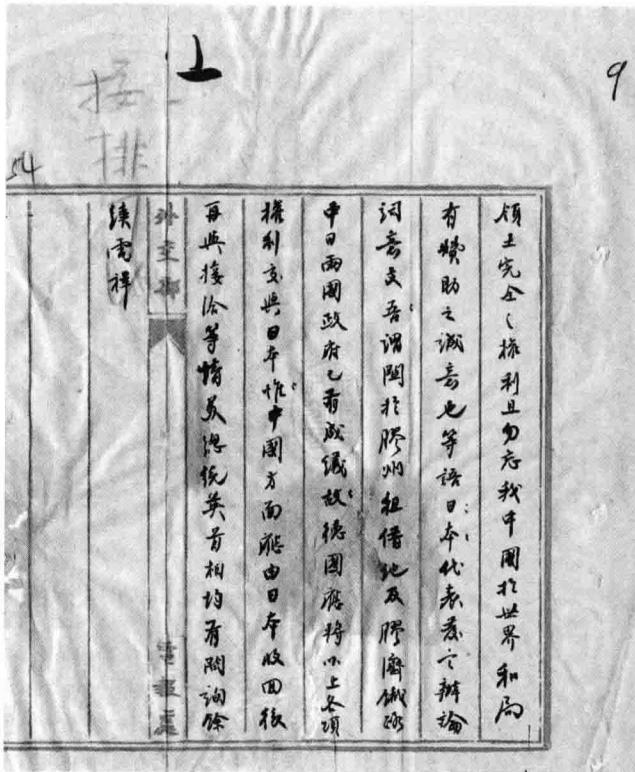 9
上
接排
54
領土完全之權利且勿忘我中國於世界和局
有贊助之誠意也等語日本代表發言辯論
詞意支吾謂關於膠州租借地及膠濟鐵路
中日兩國政府已有成議故德國應將以上各項
權利交與日本惟中國方面應由日本收回後
再與接洽等情美總統英首相均有問詢餘
外交部
電報處
續電祥